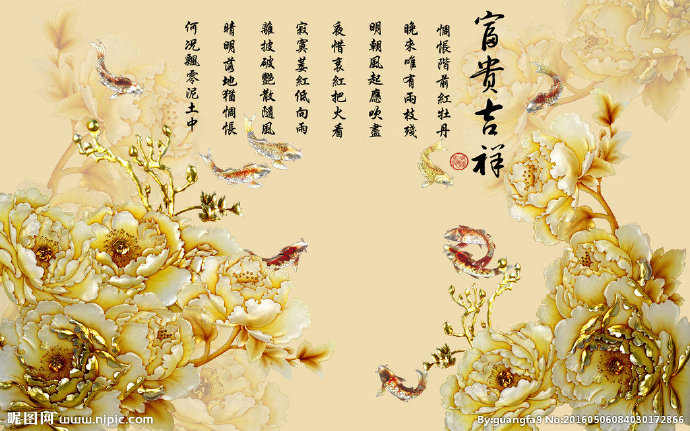 富貴吉祥
惆悵階前紅牡丹
晚來唯有兩枝殘
明朝風起應吹盡
夜惜衰紅把火看
寂寞萎紅低向雨
離披破艷散隨風
晴明落地猶惆悵
何況飄零泥土中
昵图网 www.nipic.com
By:guangfa9 No:20160506084030172866